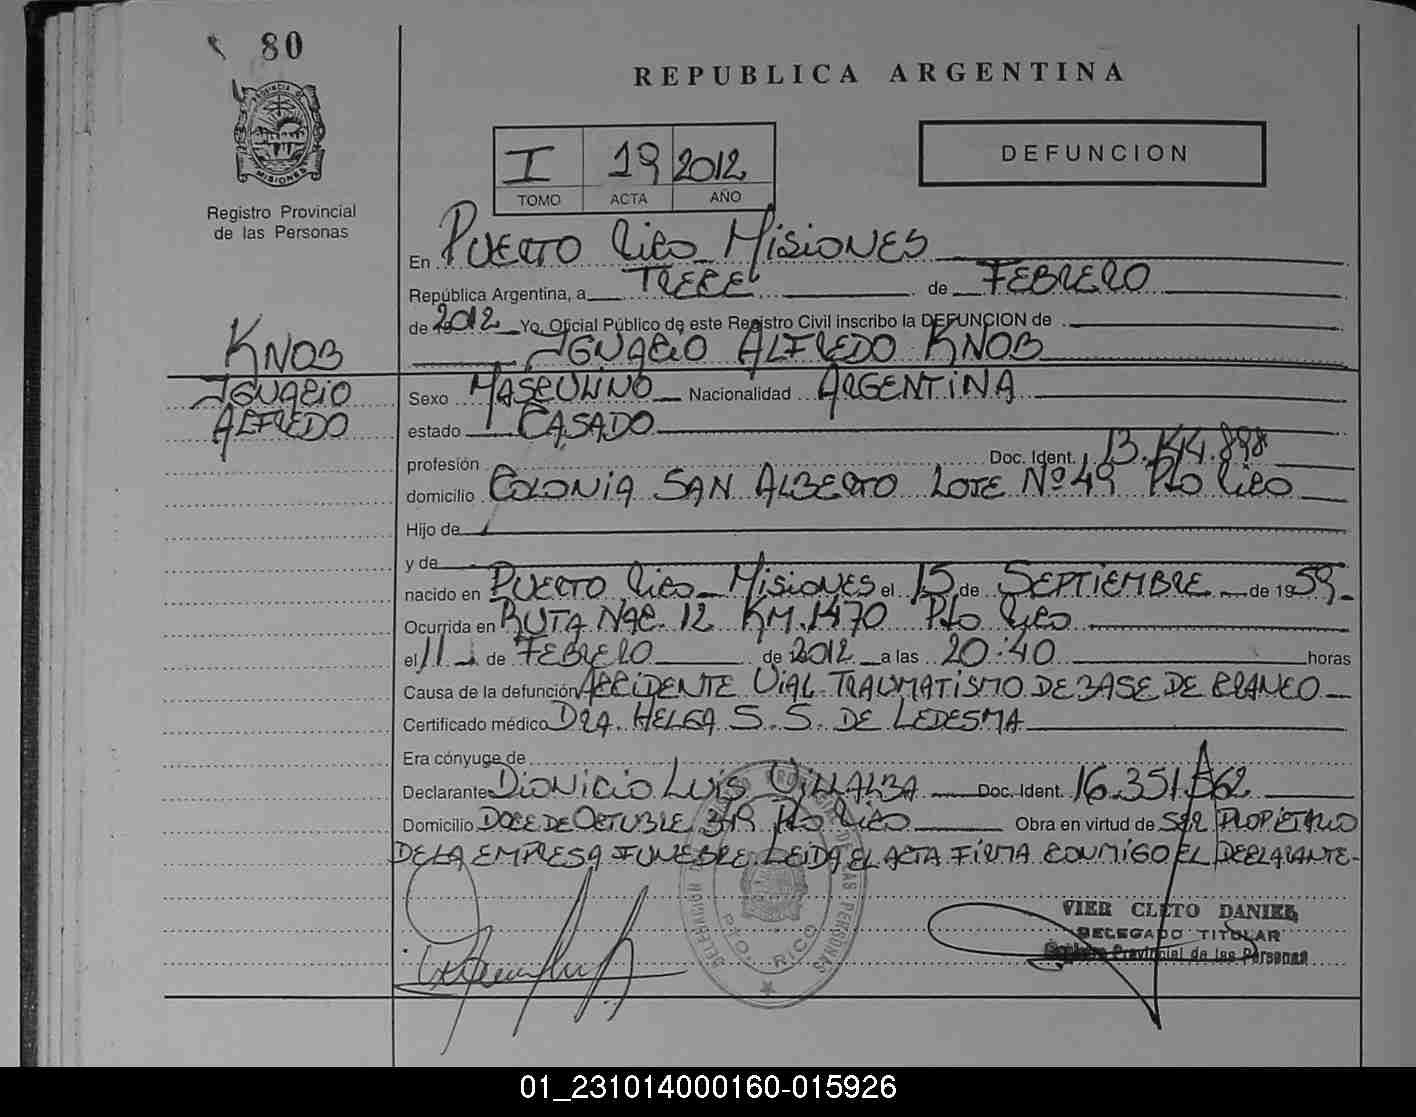 80
REPUBLICA ARGENTINA
PROVINCIA DE
MISIONES
Registro Provincial
de las Personas
I 19 2012
TOMO ACTA AÑO
DEFUNCION
En PUERTO Rico Misiones
República Argentina, a TRECE de FEBRERO
de 2012 Yo, Oficial Público de este Registro Civil inscribo la DEFUNCION de
IGNACIO ALFREDO KNOB
KNOB
IGNACIO
ALFREDO
Sexo MASCULINO Nacionalidad ARGENTINA
estado CASADO
profesión Doc. Ident. 13.144.898
domicilio COLONIA SAN ALBERTO LOTE Nº 49 Pto Rico
Hijo de
y de
nacido en PUERTO Rico Misiones el 15 de SEPTIEMBRE de 1959
Ocurrida en RUTA NAC. 12 KM. 1470 Pto Rico
el 11 de FEBRERO de 2012 a las 20:40 horas
Causa de la defunción ACCIDENTE VIAL TRAUMATISMO DE BASE DE CRANEO
Certificado médico DRA. HELGA S. S. DE LEDESMA
Era cónyuge de
Declarante DIONICIO LUIS VILLALBA Doc. Ident. 16.351.562
Domicilio DOCE DE OCTUBRE 349 Pto Rico Obra en virtud de SER PROPIETARIO
DE LA EMPRESA FUNEBRE. LEIDA EL ACTA FIRMA CONMIGO EL DECLARANTE-
DELEGACION REGISTRO PROVINCIAL DE LAS PERSONAS
PTO. RICO
VIER CLETO DANIEL
DELEGADO TITULAR
Registro Provincial de las Personas
01_231014000160-015926